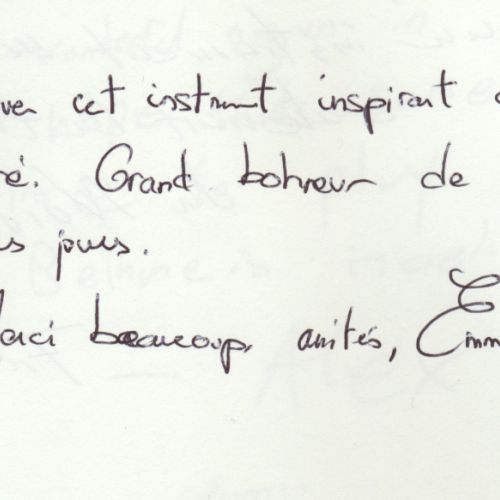 cet instrument inspirant
ré. Grand bonheur de
s jours.
Merci beaucoup, amitiés, Emm